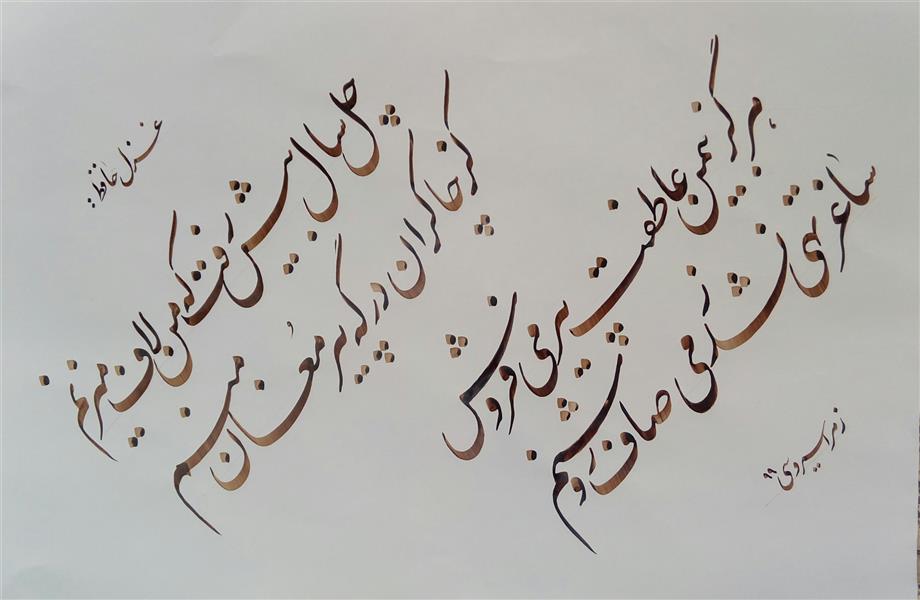 هرگز بیمن عاطفت پیر می فروش
ساغر تهی نشد ز می صاف روشنم
چل سال بیش رفت که من لاف میزنم
کز چاکران درگه پیر مغان منم
غزل حافظ
زهرا سیروسی ۹۹